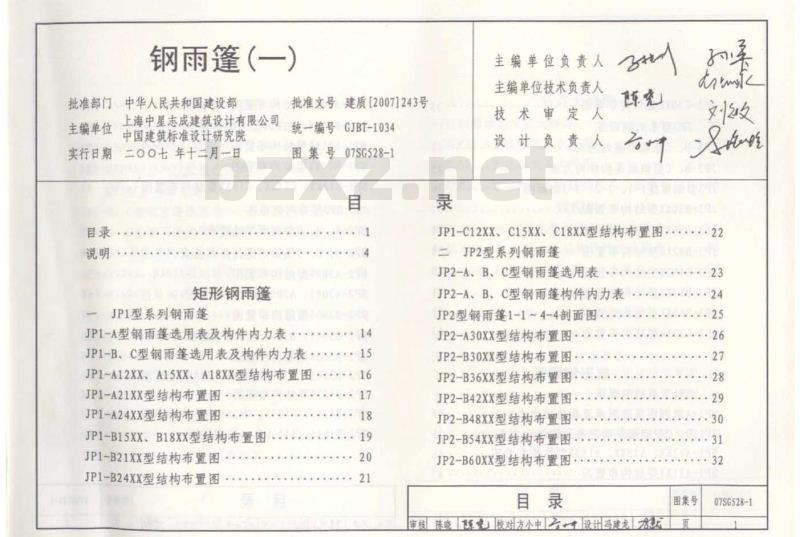 钢雨篷(一)
批准部门 中华人民共和国建设部 批准文号 建质[2007]243号
主编单位 上海中星志成建筑设计有限公司
中国建筑标准设计研究院 统一编号 GJBT-1034
实行日期 二〇〇七年十二月一日 图集号 07SG528-1
主编单位负责人
主编单位技术负责人
技术审定人
设计负责人
bzxz.net
目录
目录 1
说明 4
矩形钢雨篷
一 JP1型系列钢雨篷
JP1-A型钢雨篷选用表及构件内力表 14
JP1-B、C型钢雨篷选用表及构件内力表 15
JP1-A12XX、A15XX、A18XX型结构布置图 16
JP1-A21XX型结构布置图 17
JP1-A24XX型结构布置图 18
JP1-B15XX、B18XX型结构布置图 19
JP1-B21XX型结构布置图 20
JP1-B24XX型结构布置图 21
JP1-C12XX、C15XX、C18XX型结构布置图 22
二 JP2型系列钢雨篷
JP2-A、B、C型钢雨篷选用表 23
JP2-A、B、C型钢雨篷构件内力表 24
JP2型钢雨篷1-1~4-4剖面图 25
JP2-A30XX型结构布置图 26
JP2-B30XX型结构布置图 27
JP2-B36XX型结构布置图 28
JP2-B42XX型结构布置图 29
JP2-B48XX型结构布置图 30
JP2-B54XX型结构布置图 31
JP2-B60XX型结构布置图 32
目录 图集号 07SG528-1
审核 陈晓 校对 方小中 设计 冯建龙 页 1